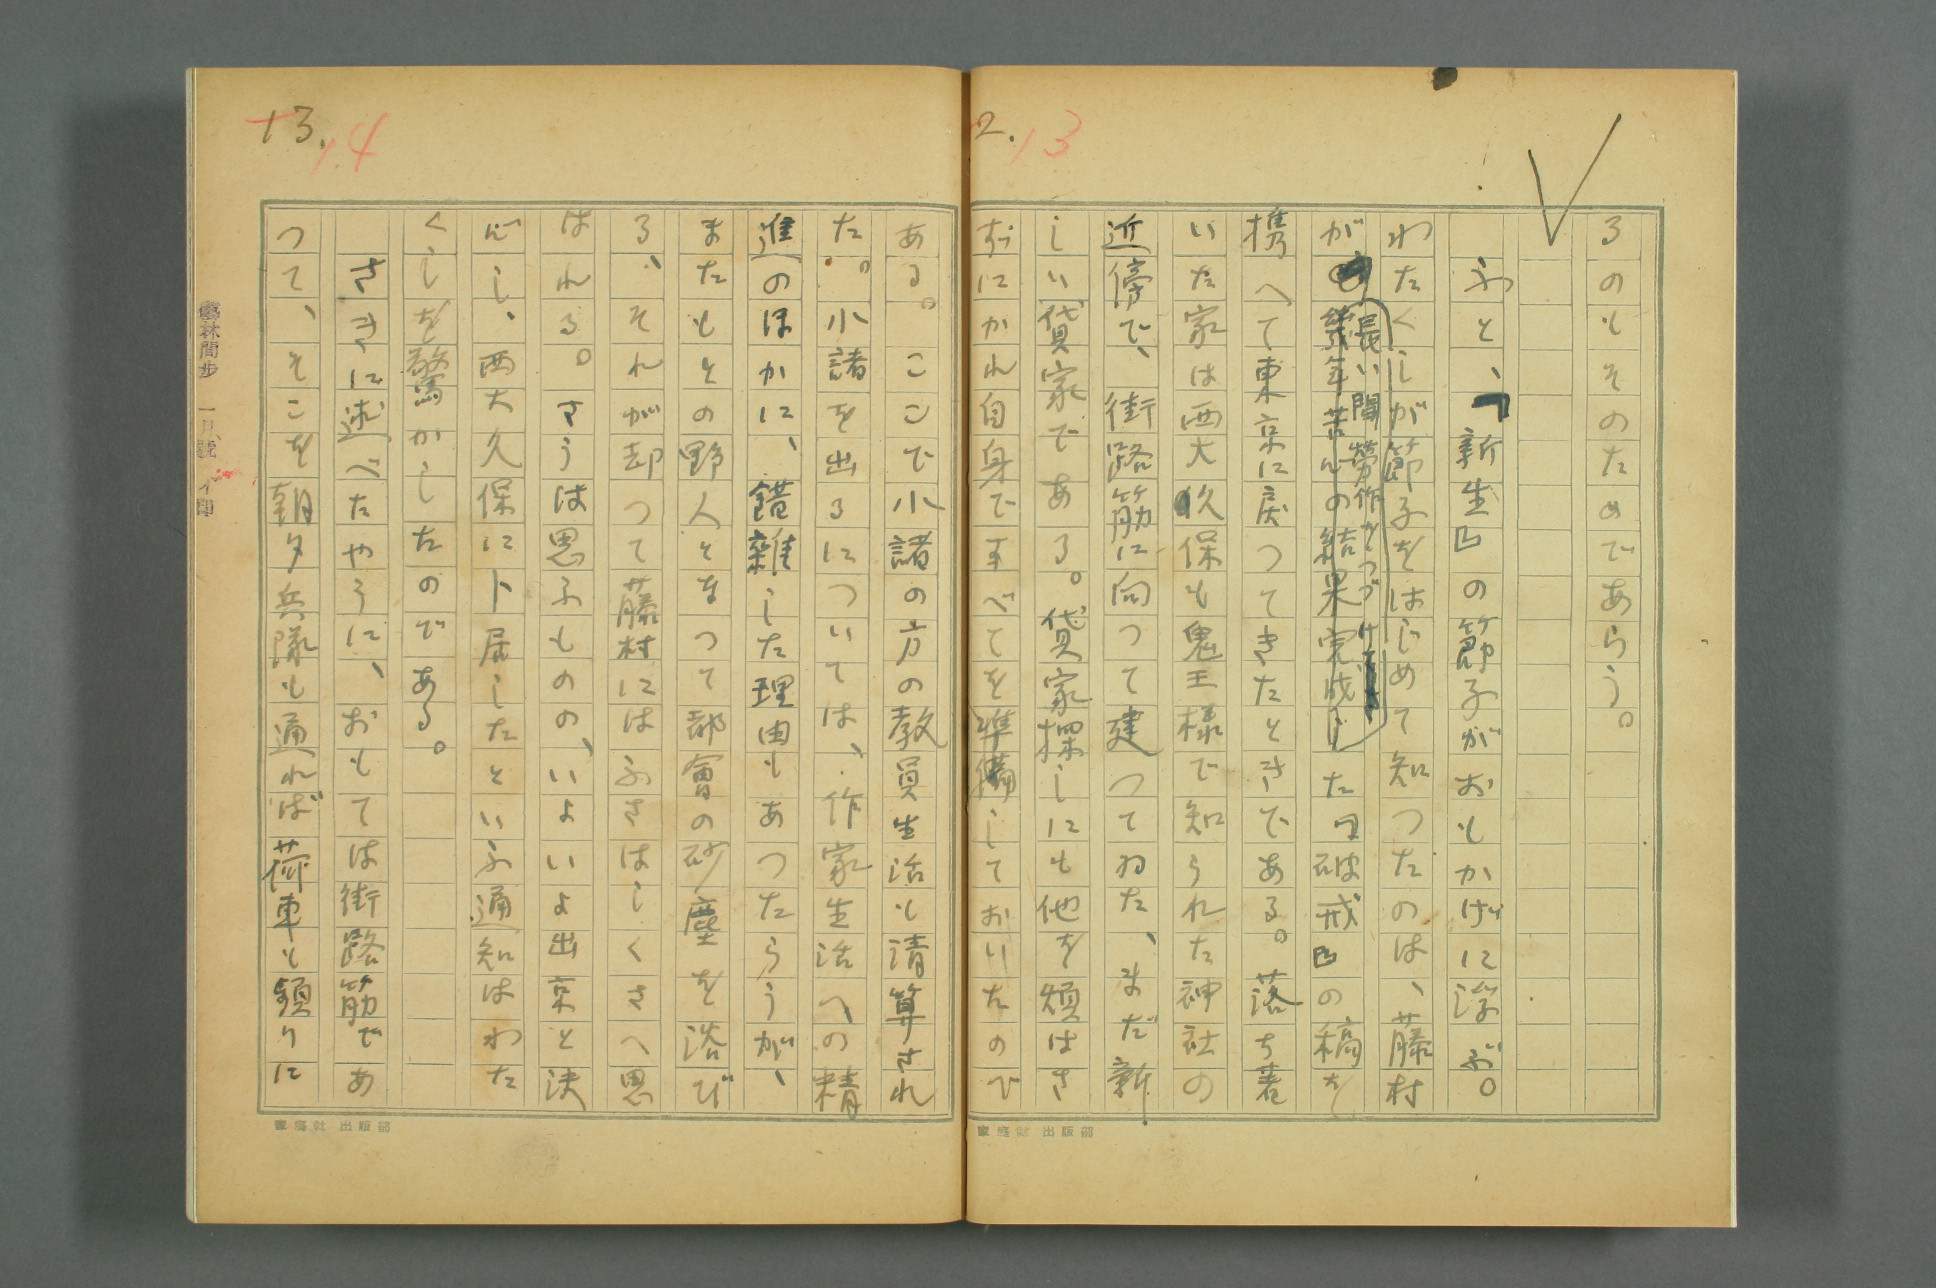 2. 13
るのもそのためであらう。
ふと、『新生』の節子がおもかげに浮ぶ。
わたくしが節子をはじめて知つたのは、藤村
長い間勞作をつづけて
が幾年苦心の結果完成した『破戒』の稿を
携へて東京に戻つてきたときである。落ち着
いた家は西大久保も鬼王様で知られた神社の
近傍で、街路筋に向つて建つてゐた、まだ新
しい貸家である。貸家探しにも他を煩はさ
ずにかれ自身ですべてを準備しておいたので
家庭社出版部
13. 14
ある。ここで小諸の方の教員生活も清算され
た。小諸を出るについては、作家生活への精
進のほかに、錯雜した理由もあつたらうが、
またもとの野人となつて都會の砂塵を浴び
る、それが却つて藤村にはふさはしくさへ思
はれる。さうは思ふものの、いよいよ出京と決
心し、西大久保に卜居したといふ通知はわた
くしを驚かしたのである。
さきに述べたやうに、おもては街路筋であ
つて、そこを朝夕兵隊も通れば荷車も頻りに
家庭社出版部
藝林間歩 一月號